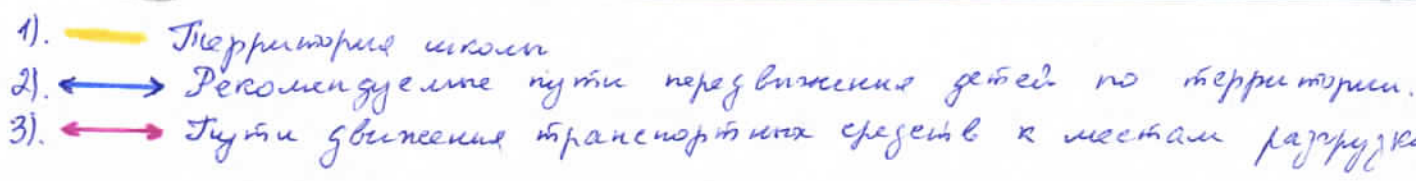 1). Территория школы
2). Рекомендуемые пути передвижения детей по территории.
3). Пути движения транспортных средств к местам разгрузк